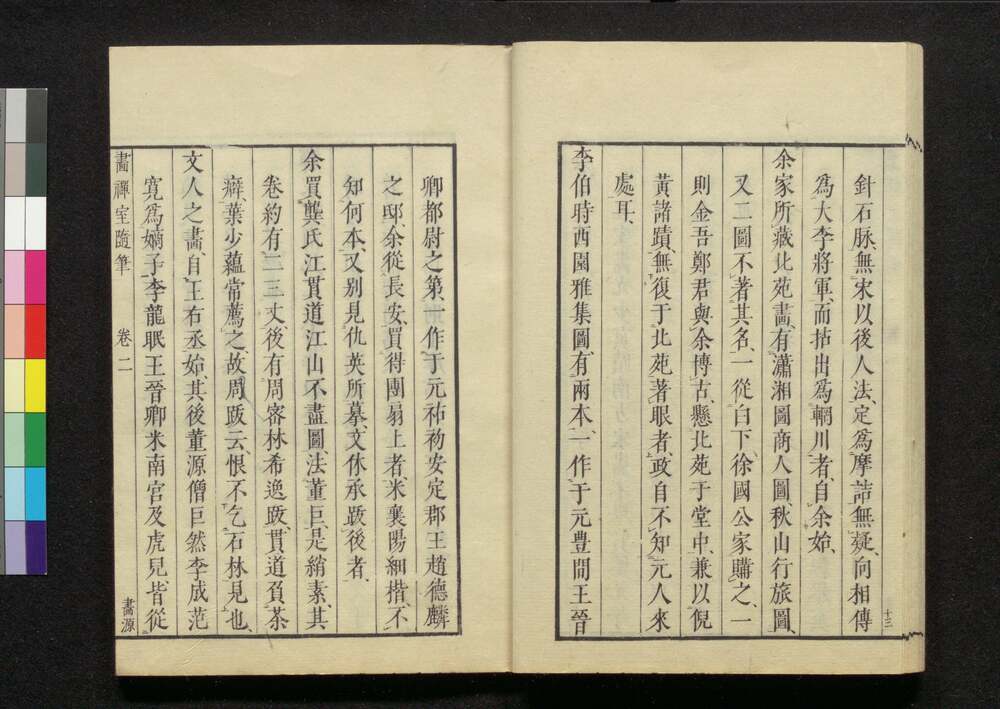 針石脉、無宋以後人法、定爲摩詰無疑、向相傳
爲大李將軍、而拈出爲輞川者、自余始、
余家所藏北苑畵、有瀟湘圖商人圖秋山行旅圖、
又二圖不著其名、一從白下徐國公家購之、一
則金吾鄭君與余博古、懸北苑于堂中、兼以倪
黃諸蹟、無復于北苑著眼者、政自不知元人來
處耳、
李伯時西園雅集圖、有兩本、一作于元豊間王晉
十三
卿都尉之第、一作于元祐初安定郡王趙德麟
之邸、余從長安、買得團扇上者、米襄陽細楷、不
知何本、又別見仇英所摹、文休承跋後者、
余買龔氏江貫道江山不盡圖、法董巨、是絹素、其
卷約有二三丈、後有周密林希逸跋、貫道負茶
癖、葉少蘊常薦之、故周跋云、恨不乞石林見也、
文人之畵、自王右丞始、其後董源僧巨然李成范
寬爲嫡子、李龍眠王晉卿米南宮及虎兒、皆從
畵禪室隨筆
卷二
畵源